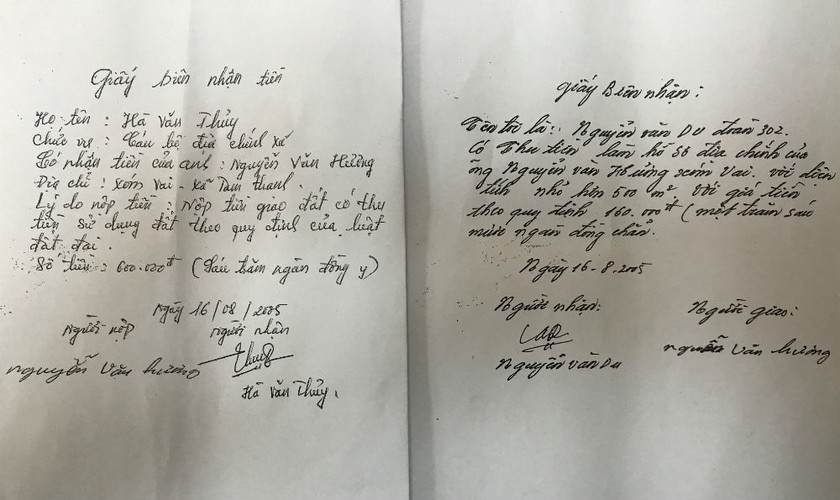 Giấy biên nhận tiền
Họ tên : Hà Văn Thủy
Chức vụ : Cán bộ địa chính xã
Có nhận tiền của anh : Nguyễn Văn Hưởng
Địa chỉ : xóm Vai - xã Tam thanh.
Lý do nộp tiền : Nộp tiền giao đất có thu
tiền sử dụng đất theo quy định của luật
đất đai.
Số tiền : 600.000đ (Sáu trăm ngàn đồng y)
Ngày 16/08/2005
Người nộp
Người nhận
nguyễn Văn hưởng
Thuỷ
Hà Văn Thủy.
Giấy Biên nhận :
Tên tôi là : Nguyễn văn Du đoàn 302.
Có Thu tiền làm hồ sơ địa chính của
ông Nguyễn văn Hưởng xóm Vai. với diện
tích nhỏ hơn 500 m², với giá tiền
theo quy định 160.000đ (một trăm sáu
mươi ngàn đồng chẵn.
Ngày 16-8-2005
Người nhận:
Người giao:
Nguyễn văn Du
nguyễn Văn hưởng